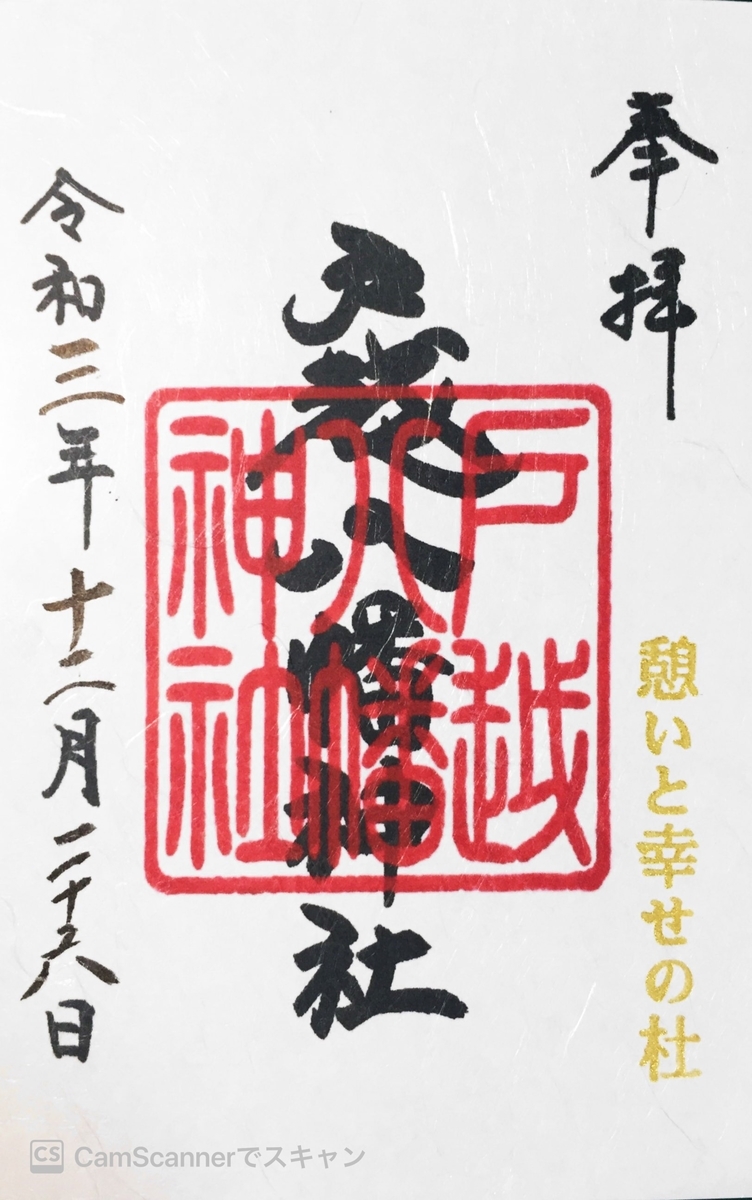 奉拝
憩いと幸せの杜
戸越八幡神社
戸越
八幡
神社
令和三年十二月二十六日
CS CamScannerでスキャン